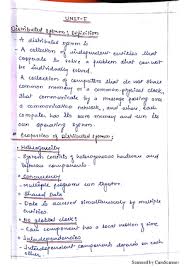 UNIT-I
Distributed System: Definition
A distributed system is
A collection of independent entities that
cooperate to solve a problem that cannot
be individually solved.
A collection of computers that do not share
common memory or a common physical clock,
that communicate by a message passing over
a communication network, and where each
computer has its own memory and run its
own operating system.
Properties of distributed System:
Heterogeneity
System consists of heterogeneous hardware and
software components
Concurrency
Multiple programs run together
Shared data
Data is accessed simultaneously by multiple
entities.
No global clock
Each component has a local notion of time
Interdependencies
Independent components depend on each
Scanned by CamScanner